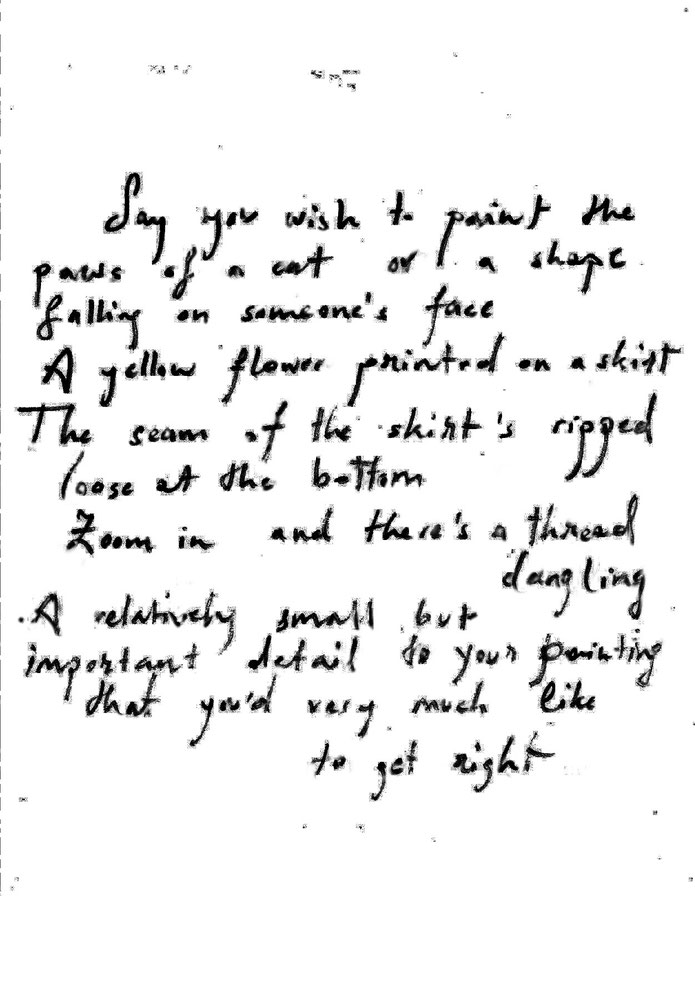 Say you wish to paint the
paws of a cat or a shape
falling on someone's face
A yellow flower printed on a skirt
The seam of the skirt's ripped
loose at the bottom
Zoom in and there's a thread
dangling
A relatively small but
important detail to your painting
that you'd very much like
to get right